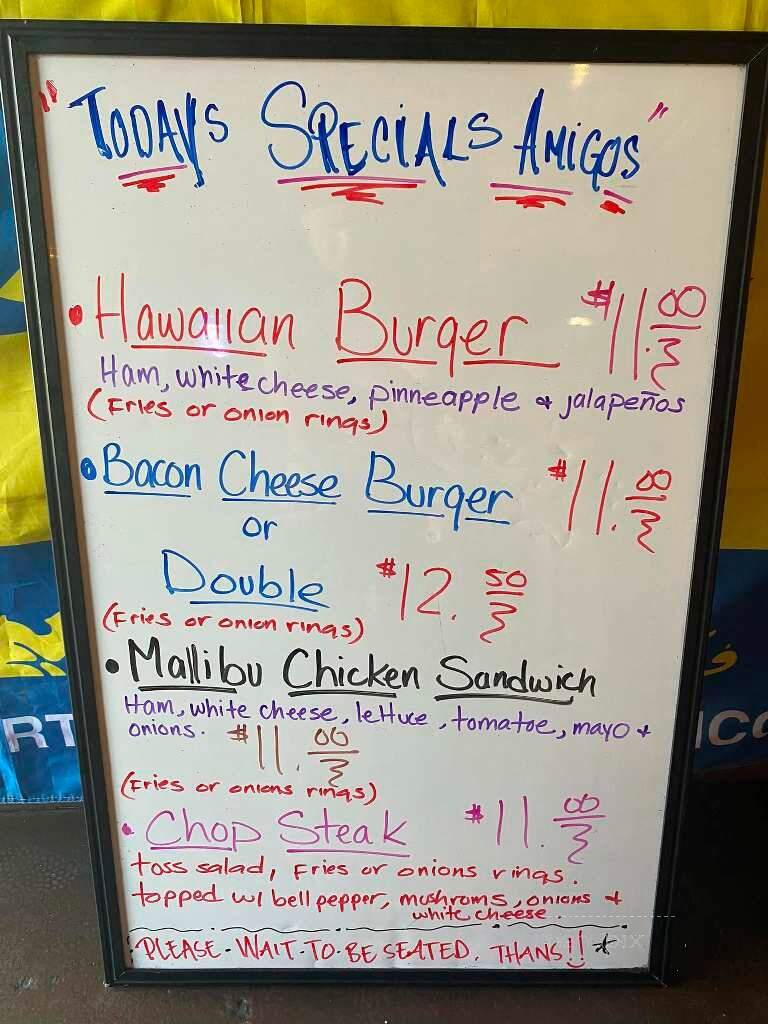 "Todays Specials Amigos"
• Hawaiian Burger $11.00
Ham, white cheese, pinneapple & jalapeños
(Fries or onion rings)
• Bacon Cheese Burger $11.00
or
Double $12.50
(Fries or onion rings)
• Mallibu Chicken Sandwich
Ham, white cheese, lettuce, tomatoe, mayo &
onions. $11.00
(Fries or onions rings)
• Chop Steak $11.00
toss salad, Fries or onions rings.
topped w/ bell pepper, mushroms, onions &
white cheese.
PLEASE-WAIT-TO-BE SEATED. THANS!!
RT
ICO